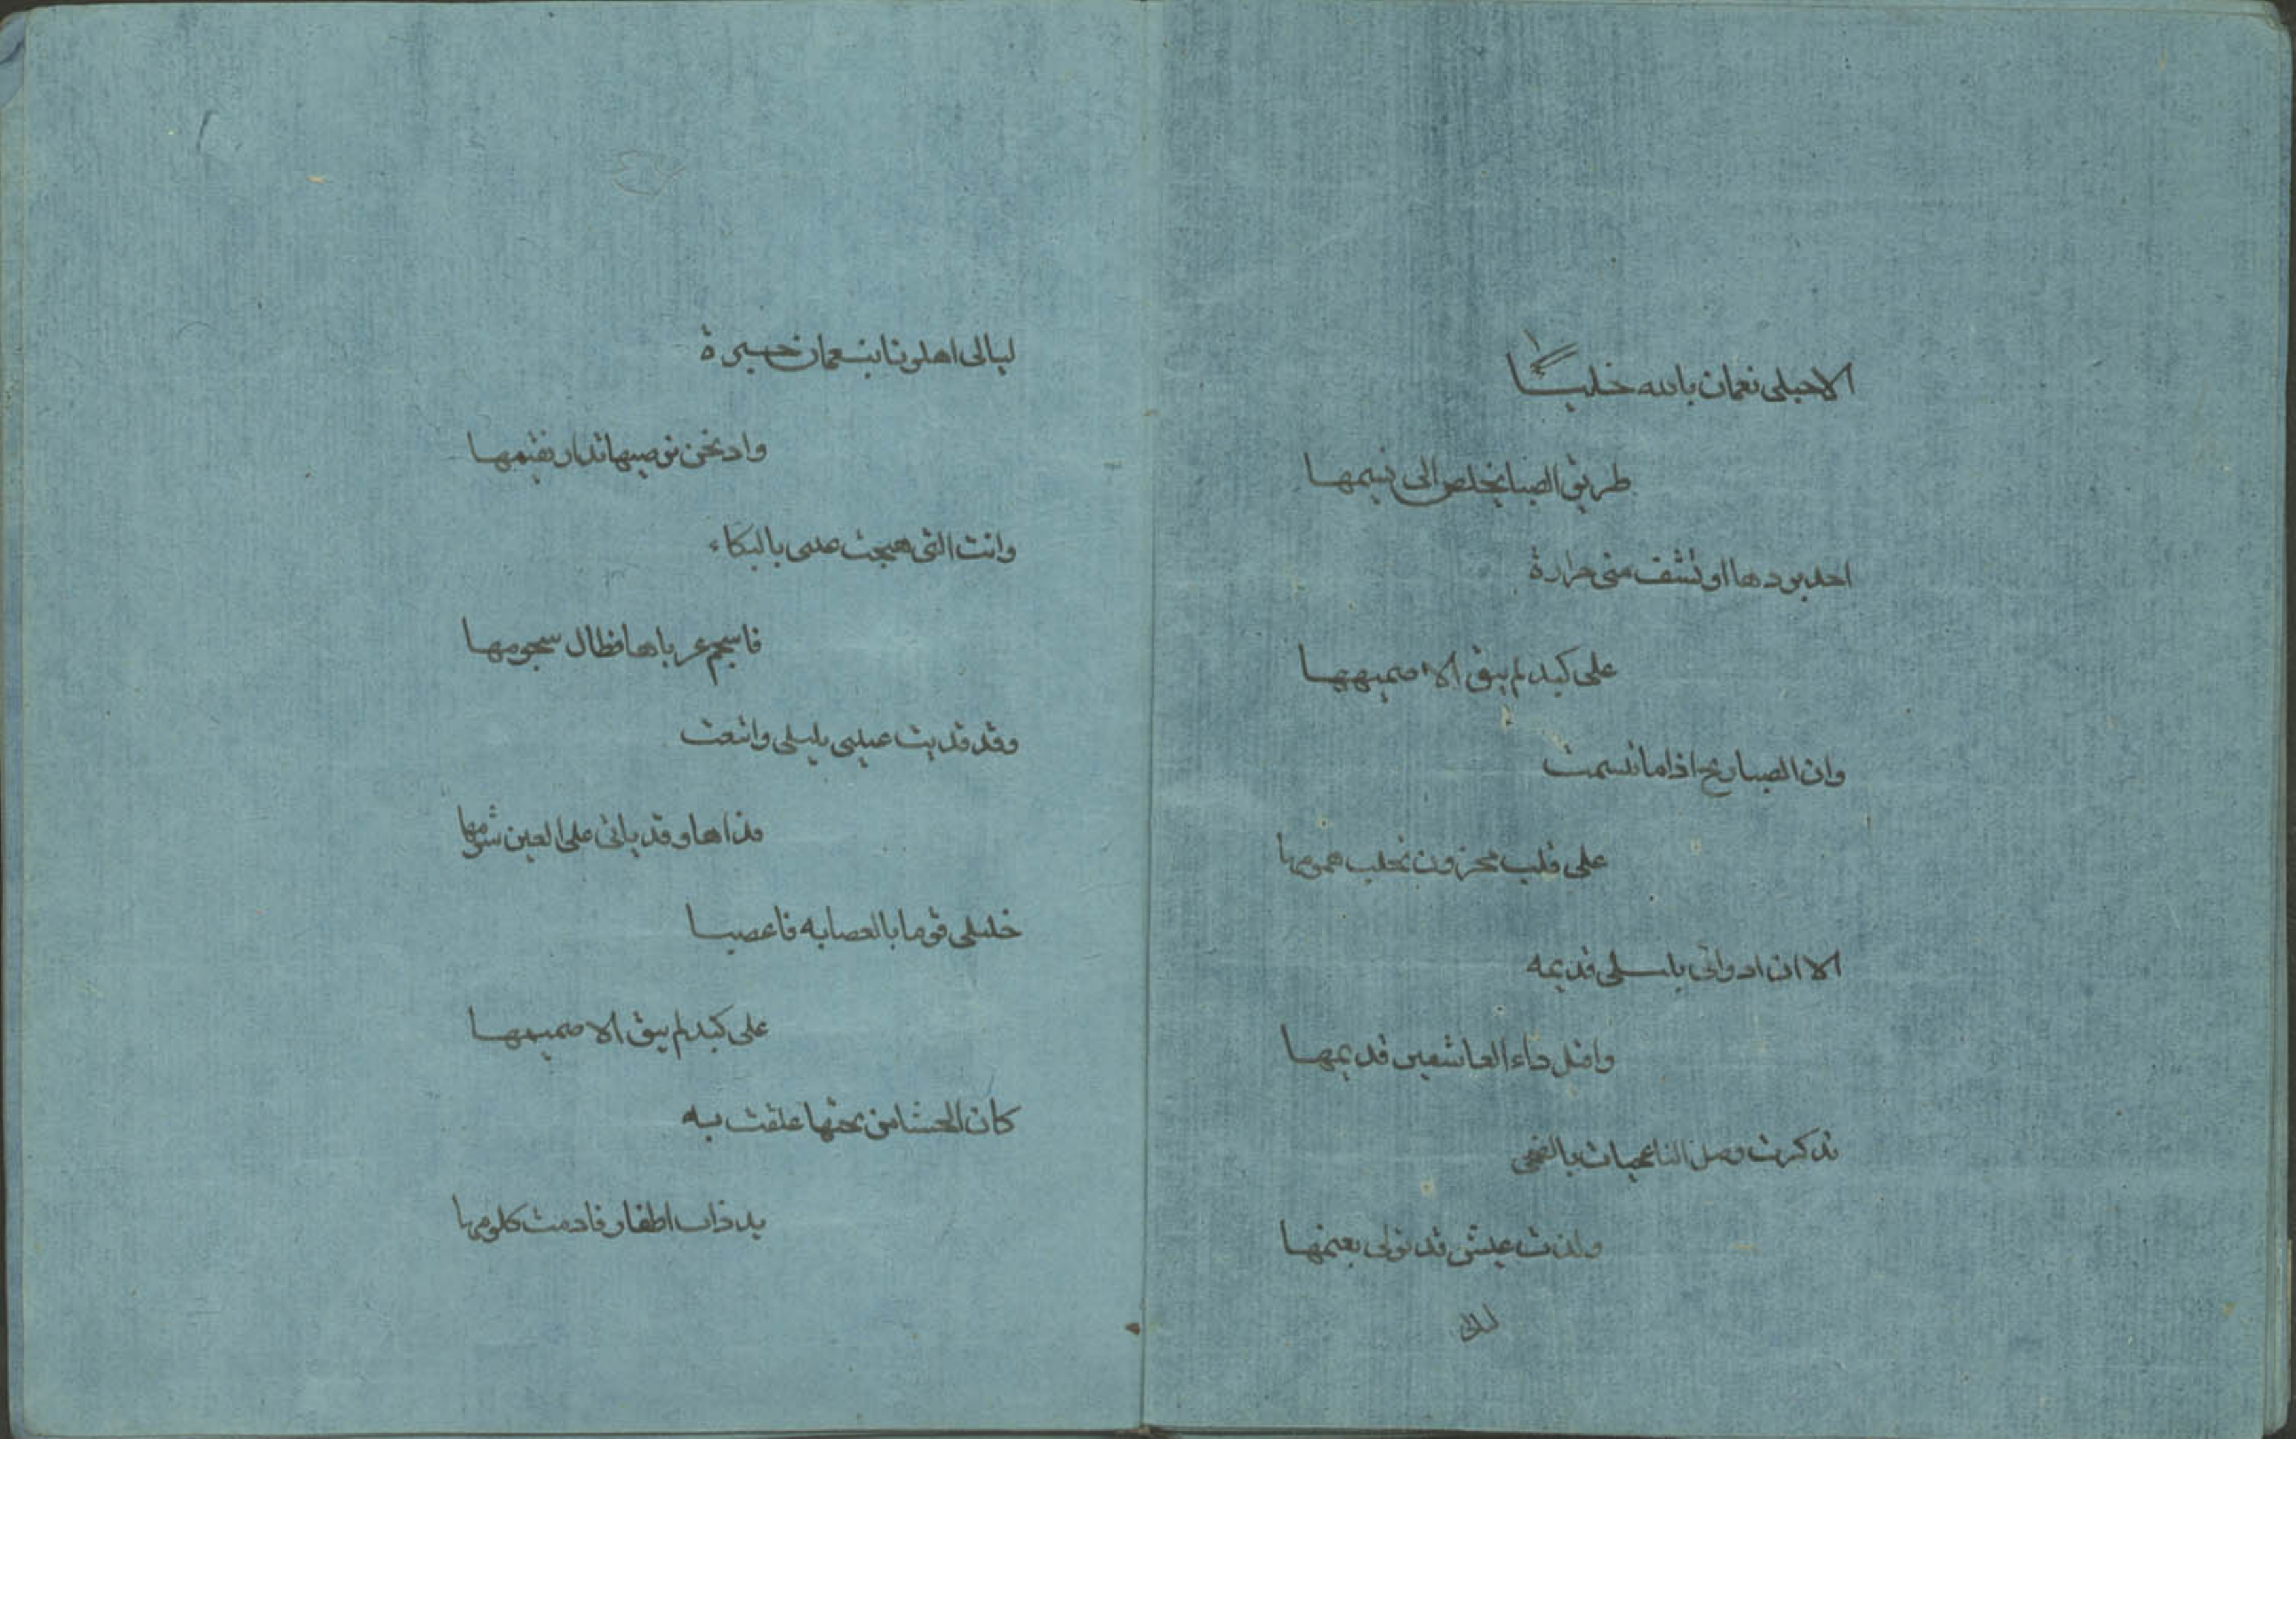 الا جبلي نعمان بالله خليا
طريق الصبا يخلص الى نسيمها
اجد بردها او تشف مني حرارة
على كبد لم يبق الا صميمها
وان الصبا ريح اذا ما تسمت
على قلب محزون تجلت همومها
الا ان ادوائي بليلى قديمه
واقتل داء العاشقين قديمها
تذكرت وصل الناعجيات بالضحى
ولذت عيش قد تولى نعيمها
ليالي
ليالي اهلونا بنعمان خيرة
واذ نحن نرضيها بدار نقيمها
وانت التي هيجت عيني بالبكاء
فاسجم غرباها فطال سجومها
وقد قذيت عيني بليلى واتبعت
قذاها وقد ياتي على العين شومها
خليلي قوما بالعصابه فاعصبا
على كبد لم يبق الا صميمها
كان الحشا من تحتها علقت به
يد ذات اظفار فادمت كلومها